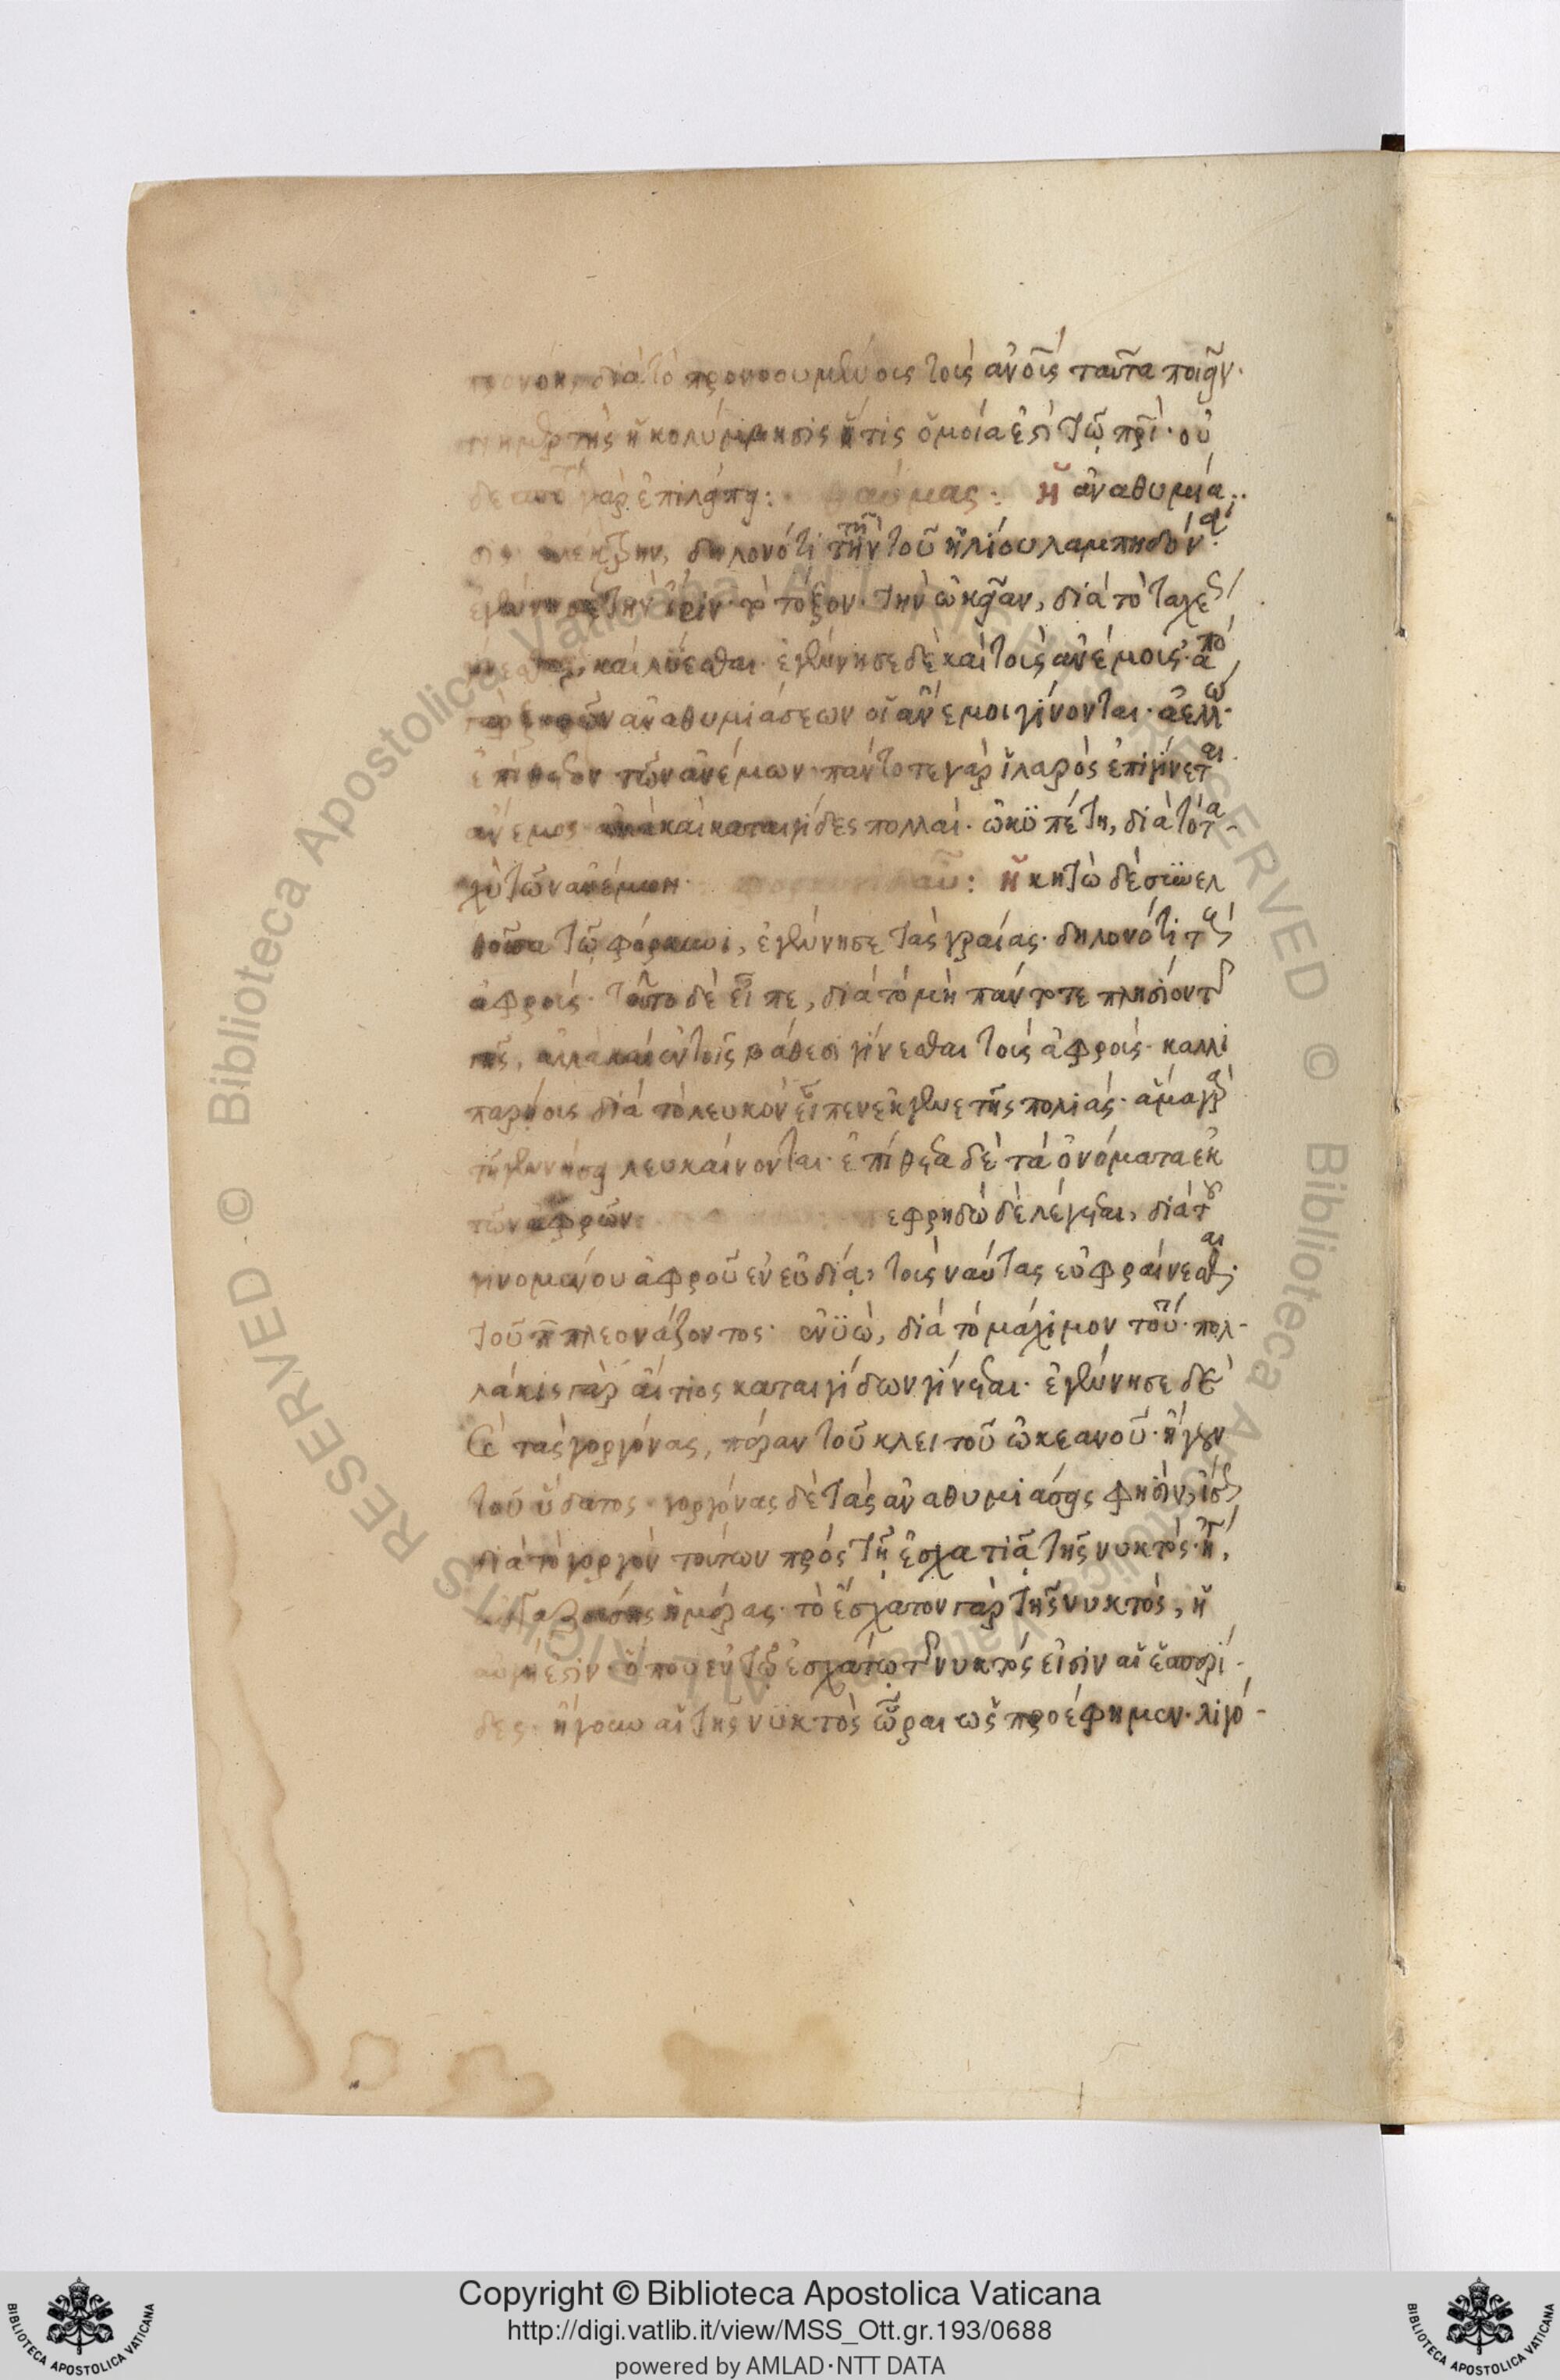 διὰ τὸ προνοουμένοις τοῖς ἀνοῖς ταῦτα ποιεῖν·
ἡ κολύμβησις ἥτις ὁμοία ἐστὶ τῷ πρὶ· οὐ
δε γὰρ ἐπιλείπει: θαύμας: ἡ ἀναθυμία
σις δηλονότι τὴν τοῦ ἡλίου λαμπηδόνα·
ἐγέννησε τὴν ἶριν· τὸ τόξον· τὴν ὠκεῖαν, διὰ τὸ ταχέως
καὶ λύεσθαι· ἐγέννησε δὲ καὶ τοὺς ἀνέμους· ἀπὸ
γὰρ τῶν ἀναθυμιάσεων οἱ ἄνεμοι γίνονται· ἀελλὼ
ἐπίθετον τῶν ἀνέμων· πάντοτε γὰρ ἱλαρὸς ἐπιγίνεται
ἄνεμος ἀλλὰ καὶ καταιγίδες πολλαί· ὠκυπέτη, διὰ τὸ τα-
χὺ τῶν ἀνέμων· ἡ κητὼ δὲ συνελ
θοῦσα τῷ φόρκυνι, ἐγέννησε τὰς γραίας· δηλονότι τοὺς
ἀφρούς· τοῦτο δὲ εἶπε, διὰ τὸ μὴ πάντοτε πλησίον τῆς
γῆς, ἀλλὰ καὶ ἐν τοῖς βάθεσι γίνεσθαι τοὺς ἀφρούς· καλλι
παρήους διὰ τὸ λευκὸν εἶπεν ἐκ γενετῆς πολιάς· ἅμα γὰρ
τῇ γεννήσει λευκαίνονται· ἐπίθετα δὲ τὰ ὀνόματα ἐκ
τῶν ἀφρῶν· εφρηδὼ δὲ λέγεται, διὰ τοῦ
γινομένου ἀφροῦ ἐν εὐδίᾳ, τοὺς ναύτας εὐφραίνεσθαι·
τοῦ π πλεονάζοντος· ἐνϋὼ, διὰ τὸ μάχιμον τοῦ· πολ-
λάκις γὰρ αἴτιος καταιγίδων γίνεται· ἐγέννησε δὲ
καὶ τὰς γοργόνας, πέραν τοῦ κλειτοῦ ὠκεανοῦ· ἤγουν
τοῦ ὕδατος· γοργόνας δὲ τὰς ἀναθυμιάσεις φησὶν
διὰ τὸ γοργὸν τούτων πρὸς τῇ ἐσχατιᾷ τῆς νυκτός·
ἡμέρας· τὸ ἔσχατον γὰρ τῆς νυκτός, ἡ
αὐγή ἐστιν· ὅπου ἐν τῷ ἐσχάτῳ τῆς νυκτός εἰσιν αἱ ἑσπερί-
δες· ἤγουν αἱ τῆς νυκτὸς ὧραι ὡς προέφημεν· λιγυ-
Copyright © Biblioteca Apostolica Vaticana
http://digi.vatlib.it/view/MSS_Ott.gr.193/0688
powered by AMLAD·NTT DATA